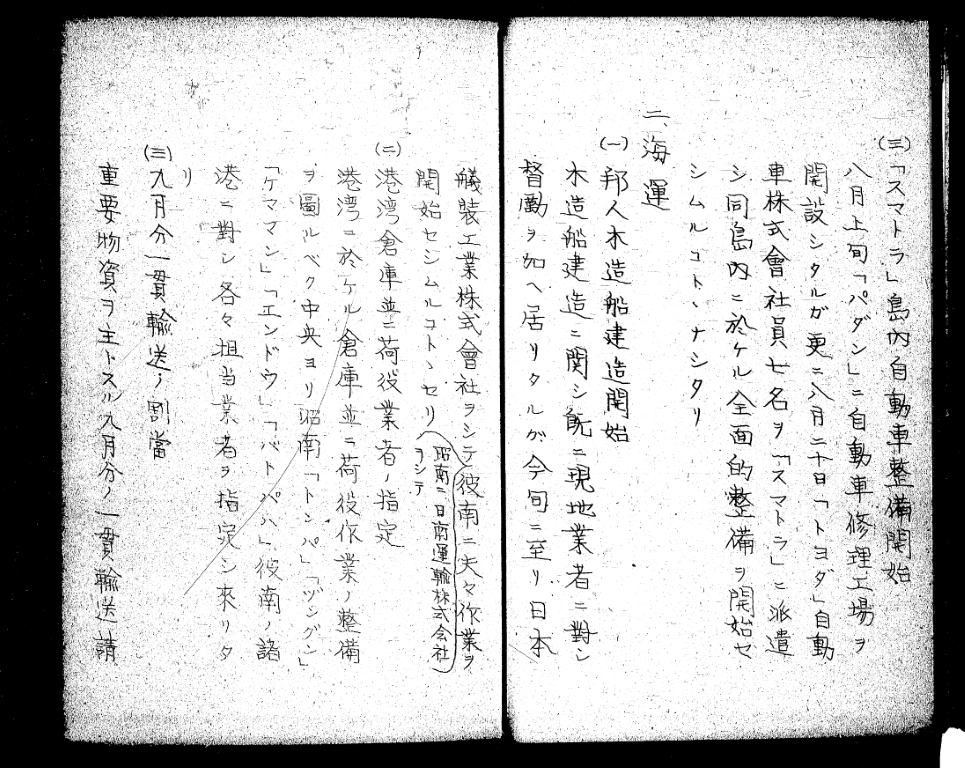 (三)「スマトラ」島內自動車整備開始
八月上旬「パダン」ニ自動車修理工場ヲ
開設シタルガ更ニ八月二十日「トヨダ」自動
車株式會社員七名ヲ「スマトラ」ニ派遣
シ同島內ニ於ケル全面的整備ヲ開始セ
シムルコトヽナシタリ
二、海運
(一)邦人木造船建造開始
木造船建造ニ関シ既ニ現地業者ニ對シ
督勵ヲ加ヘ居リタルガ今旬ニ至リ日本
艤装工業株式會社ヲシテ彼南ニ夫々作業ヲ
昭南ニ日南運輸株式会社
ヲシテ
開始セシムルコトヽセリ
(二)港湾倉庫並ニ荷役業者ノ指定
港湾ニ於ケル倉庫並ニ荷役作業ノ整備
ヲ圖ルベク中央ヨリ昭南「トンパ」「ヅングン」
「ケママン」「エンドウ」「バトパハ」彼南ノ諸
港ニ對シ各々担当業者ヲ指定シ來リタ
リ
(三)九月分一貫輸送ノ割當
重要物資ヲ主トスル九月分ノ一貫輸送請